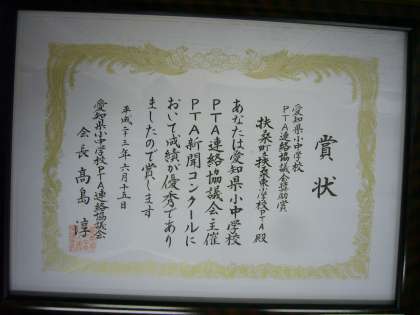 賞状
愛知県小中学校
PTA連絡協議会奨励賞
扶桑町扶桑東小学校PTA殿
あなたは愛知県小中学校
PTA連絡協議会主催
PTA新聞コンクールに
おいて成績が優秀であり
ましたので賞します
平成二十三年六月十五日
愛知県小中学校PTA連絡協議会
会長高島淳